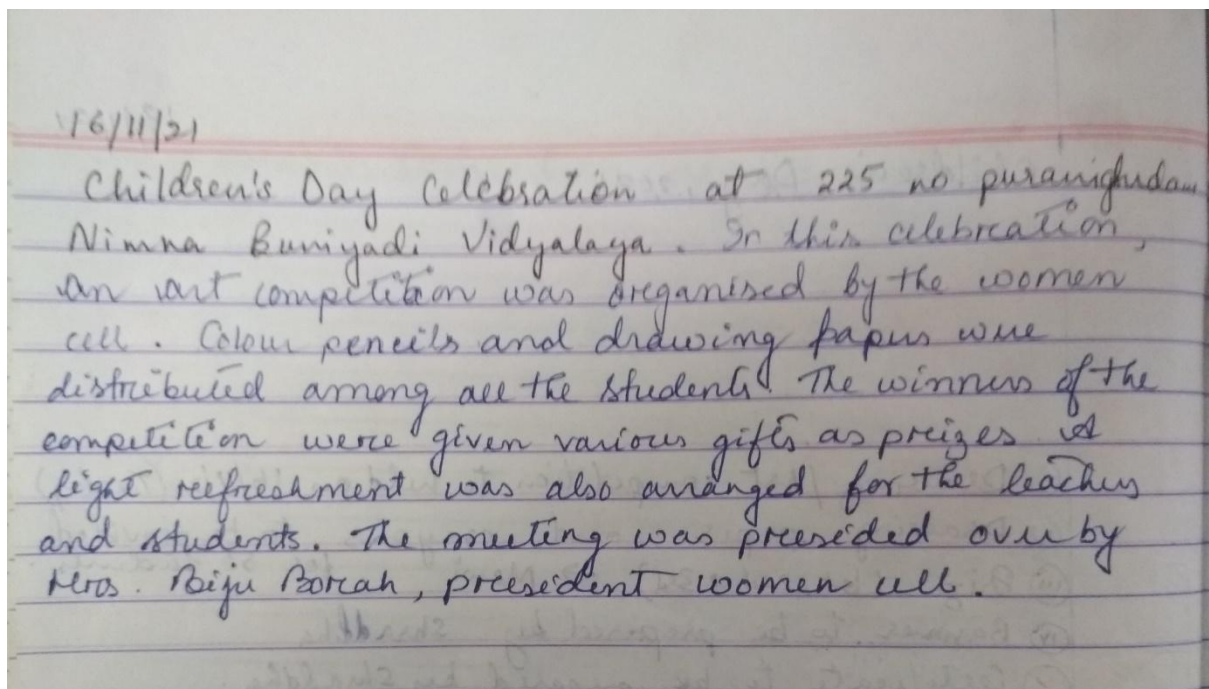 16/11/21
Children's Day Celebration at 225 no puranigudam
Nimna Buniyadi Vidyalaya. In this celebration,
an art competition was organised by the women
cell. Colour pencils and drawing papers were
distributed among all the students. The winners of the
competition were given various gifts as preizes. A
light reefreshment was also arranged for the teachers
and students. The meeting was preesided over by
Mrs. Biju Borah, preesident women cell.